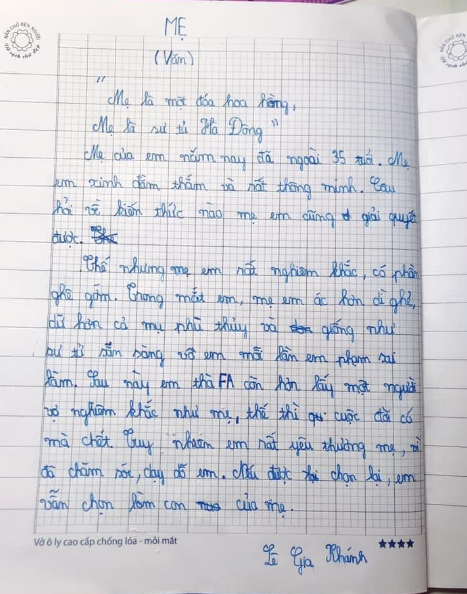 NÉN CHỮ RÈN NGƯỜI
MẸ
(Văn)
"
Mẹ là một đóa hoa hồng,
Mẹ là sư tử Hà Đông"
Mẹ của em năm nay đã ngoài 35 tuổi. Mẹ
em xinh đằm thắm và rất thông minh. Câu
hỏi về kiến thức nào mẹ em cũng giải quyết
được.
Thế nhưng mẹ em rất nghiêm khắc, có phần
ghê gớm. Trong mắt em, mẹ em ác hơn dì ghẻ,
dữ hơn cả mụ phù thủy và giống như
sư tử sẵn sàng vồ em mỗi lần em phạm sai
lầm. Sau này em thà FA còn hơn lấy một người
vợ nghiêm khắc như mẹ, thế thì cuộc đời có
mà chết. Tuy nhiên em rất yêu thương mẹ, vì
đã chăm sóc, dạy dỗ em. Nếu được chọn lại, em
vẫn chọn làm con của mẹ.
Vở ô ly cao cấp chống lóa - mỏi mắt
Lê Gia Khánh